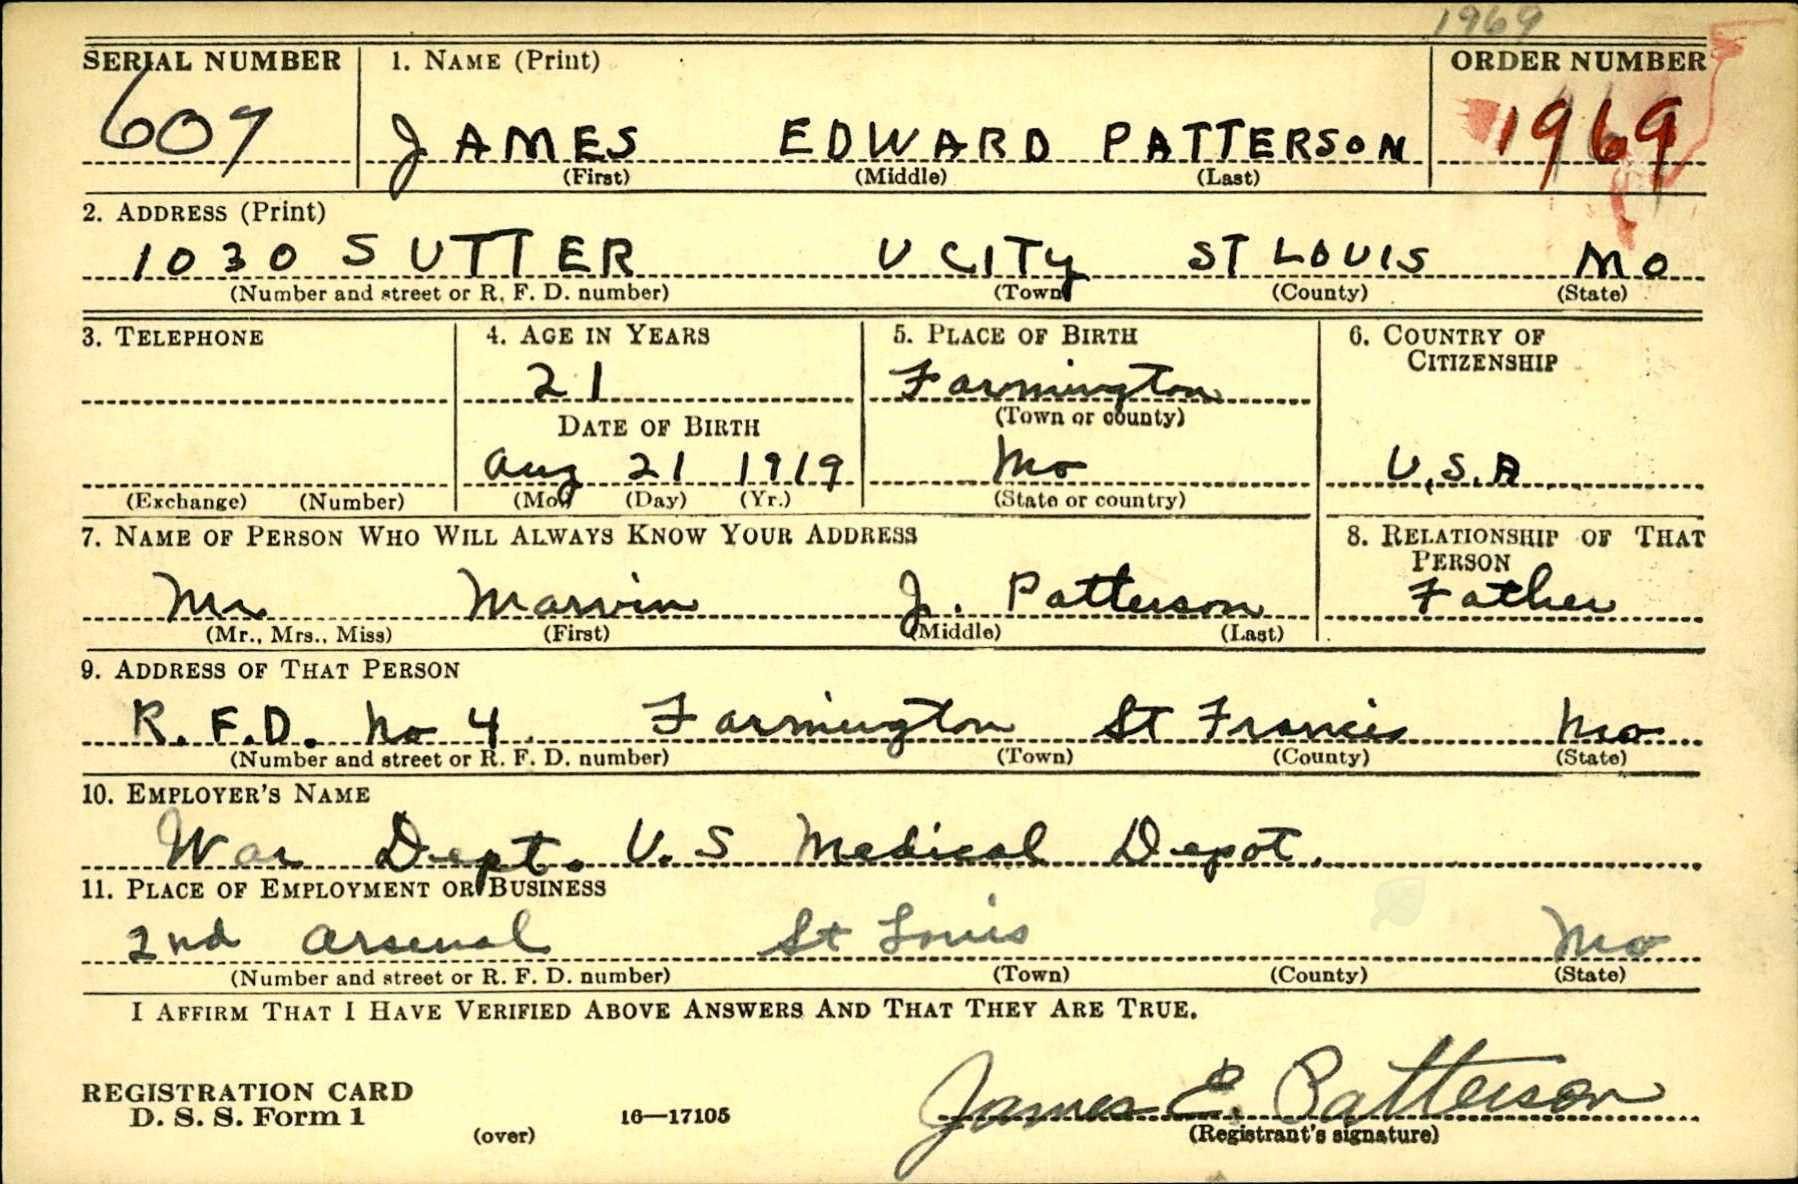 1969
SERIAL NUMBER 1. NAME (Print) ORDER NUMBER
607 JAMES EDWARD PATTERSON 1969
(First) (Middle) (Last)
2. ADDRESS (Print)
1030 SUTTER U CITY ST LOUIS MO
(Number and street or R. F. D. number) (Town) (County) (State)
3. TELEPHONE 4. AGE IN YEARS 5. PLACE OF BIRTH 6. COUNTRY OF CITIZENSHIP
21 Farmington
(Town or county)
DATE OF BIRTH
Aug 21 1919 Mo U.S.A
(Exchange) (Number) (Mo.) (Day) (Yr.) (State or country)
7. NAME OF PERSON WHO WILL ALWAYS KNOW YOUR ADDRESS 8. RELATIONSHIP OF THAT PERSON
Mr Marvin J. Patterson Father
(Mr., Mrs., Miss) (First) (Middle) (Last)
9. ADDRESS OF THAT PERSON
R.F.D. No 4 Farmington St Francis Mo
(Number and street or R. F. D. number) (Town) (County) (State)
10. EMPLOYER'S NAME
War Dept. U.S Medical Depot.
11. PLACE OF EMPLOYMENT OR BUSINESS
2nd Arsenal St Louis Mo
(Number and street or R. F. D. number) (Town) (County) (State)
I AFFIRM THAT I HAVE VERIFIED ABOVE ANSWERS AND THAT THEY ARE TRUE.
James E. Patterson
REGISTRATION CARD
D. S. S. Form 1 16—17105
(over) (Registrant's signature)